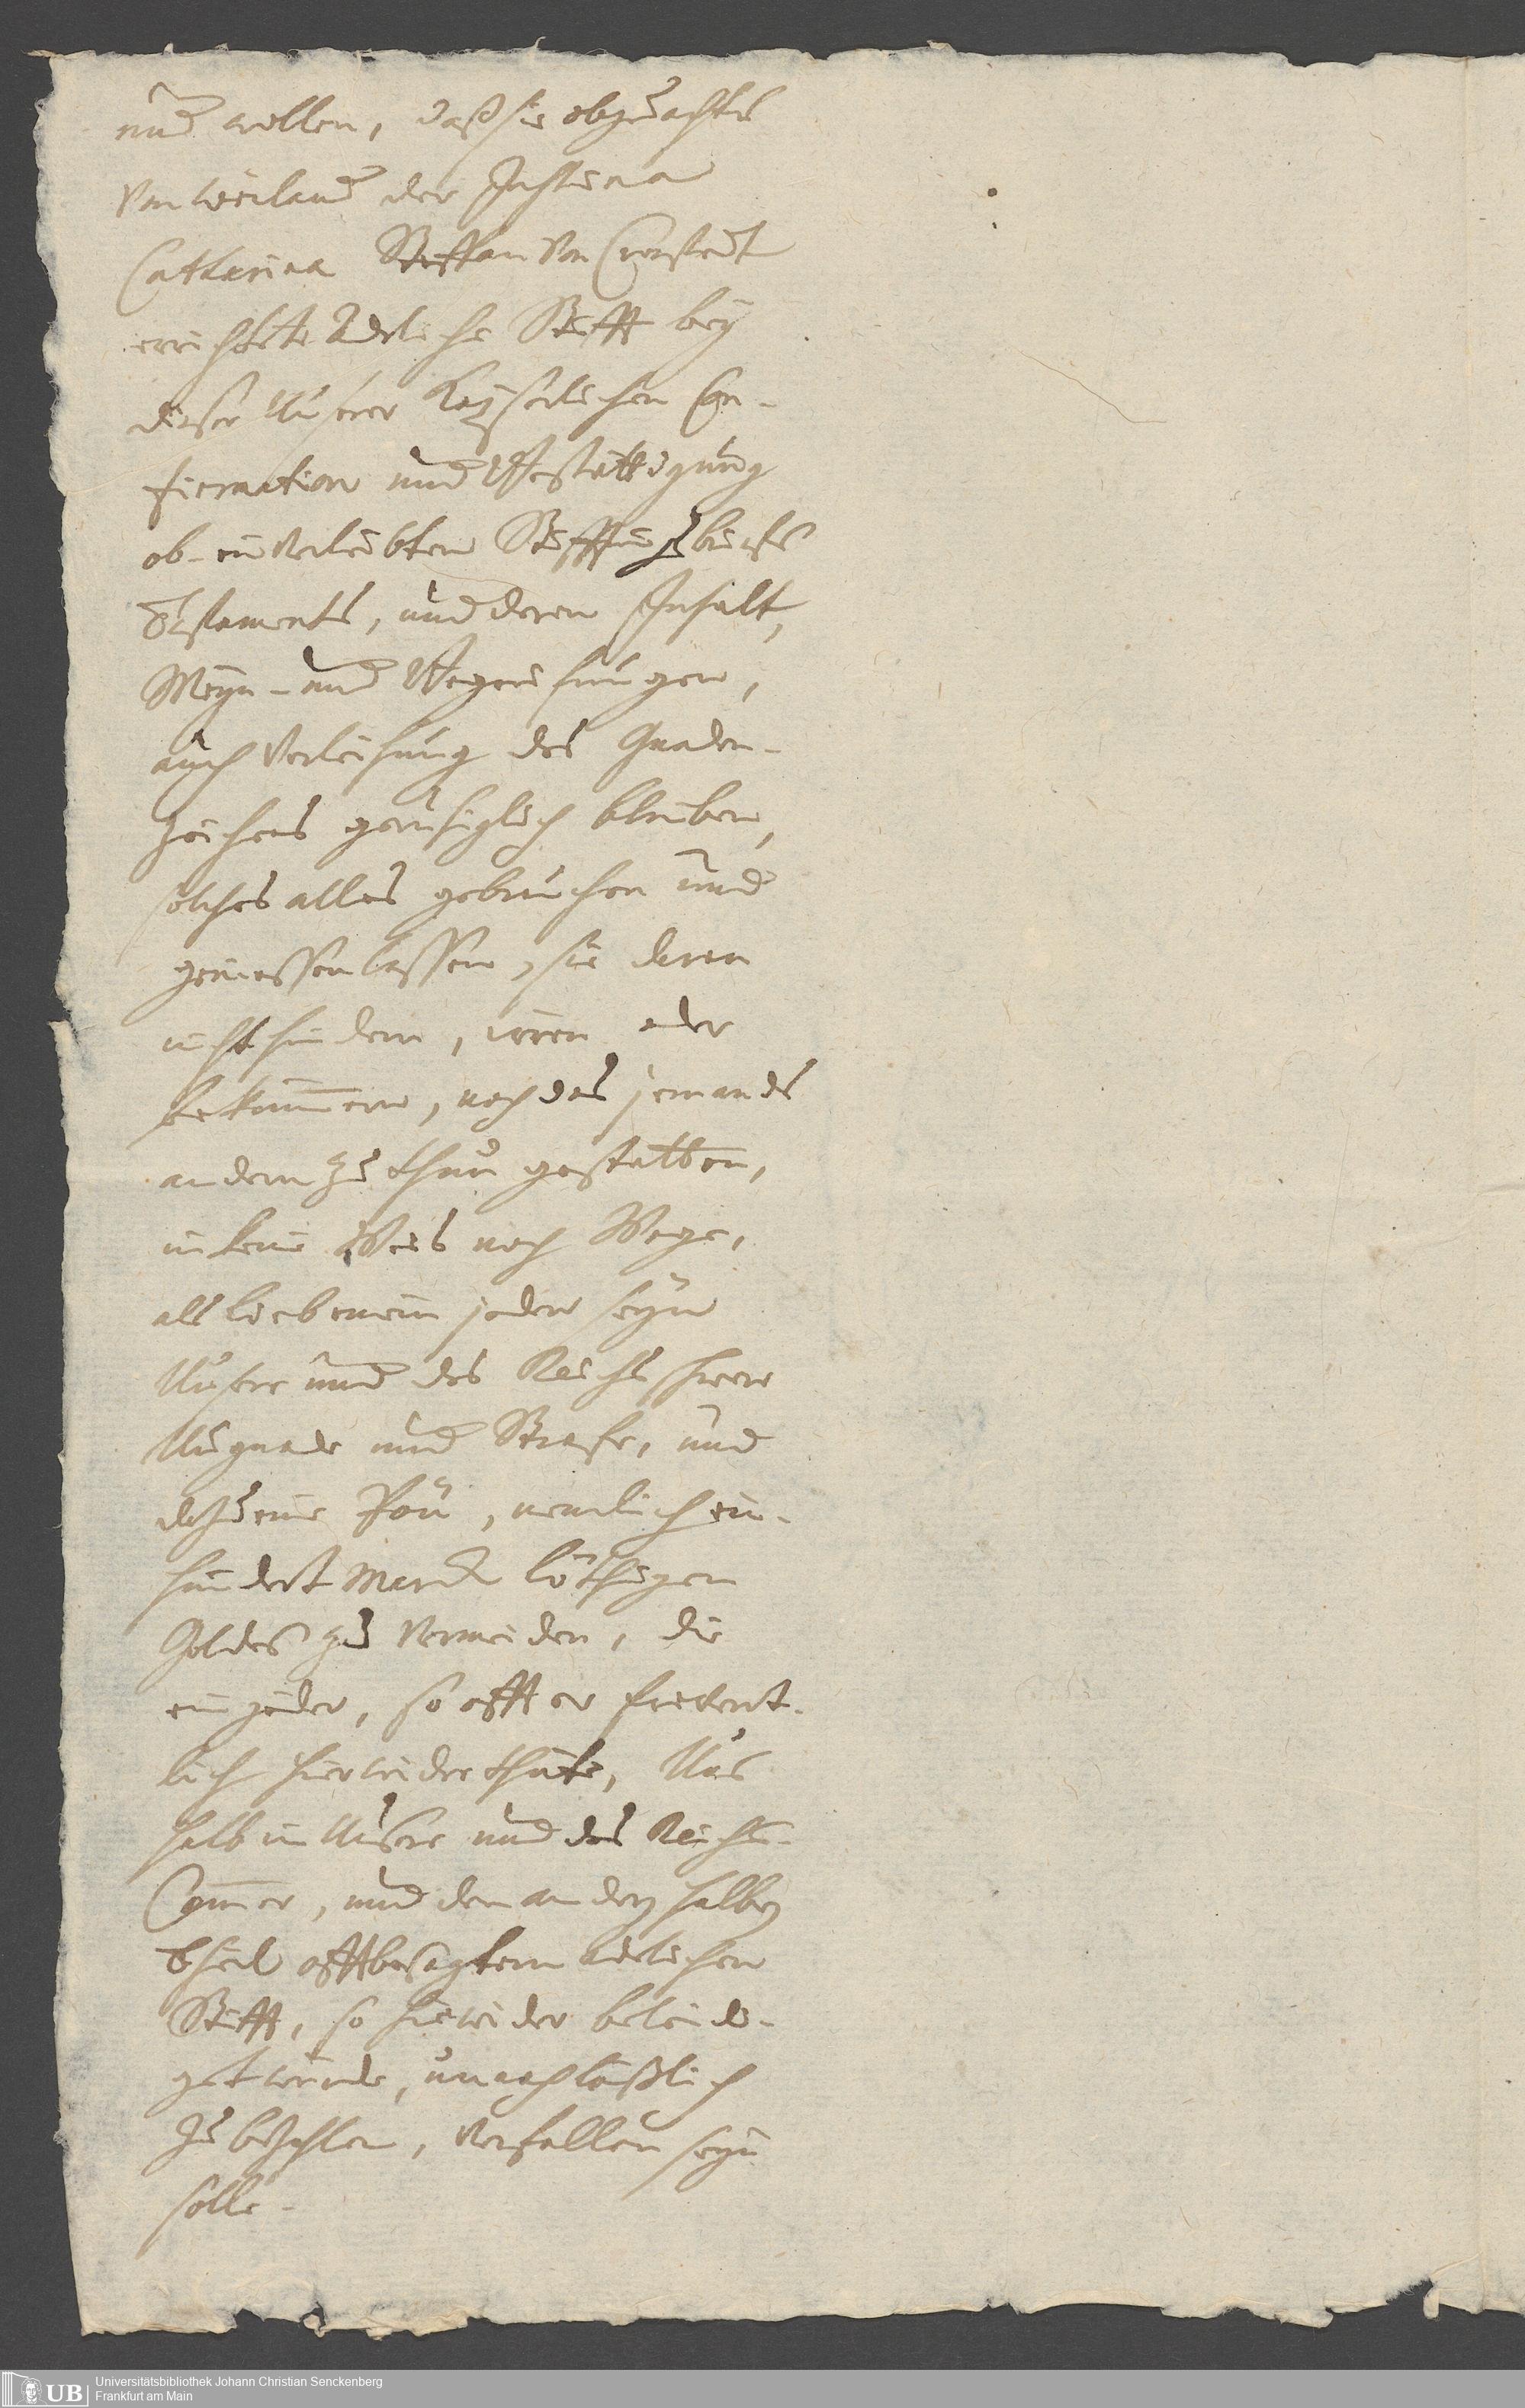 und wollen, daß sie obgedachtes
von weiland der Justina
Catharina Steffan von Cronstett
errichtete Adeliche Stifft bey
dieser Unserer Kayserlichen Con-
firmation und Bestättigung
ob-einverleibten Stifftungsbriefs
Testaments, und deren Inhalt,
Meyn- und Begreifungen,
auch Verleihung des Gnaden-
zeichens geruhiglich bleiben,
solches alles gebrauchen und
geniessen lassen, sie daran
nicht hindern, irren oder
bekümmern, noch das jemands
andern zu thun gestatten,
in keine Weis noch Wege,
als lieb einem jeden seyn
Unsere und des Reichs schwere
Ungnade und Strafe, und
dazu eine Pön, nemlich ein-
hundert Marck löthigen
Goldes zu vermeiden, die
ein jeder, so offt er frevent-
lich hierwider thäte, Uns
halb in Unsere und des Reichs-
Cammer, und den andern halben
Theil offtbesagtem adelichen
Stifft, so hierwider beleidi-
get würde, unnachläßlich
zu bezahlen, verfallen seyn
solle.
Universitätsbibliothek Johann Christian Senckenberg
Frankfurt am Main
UB